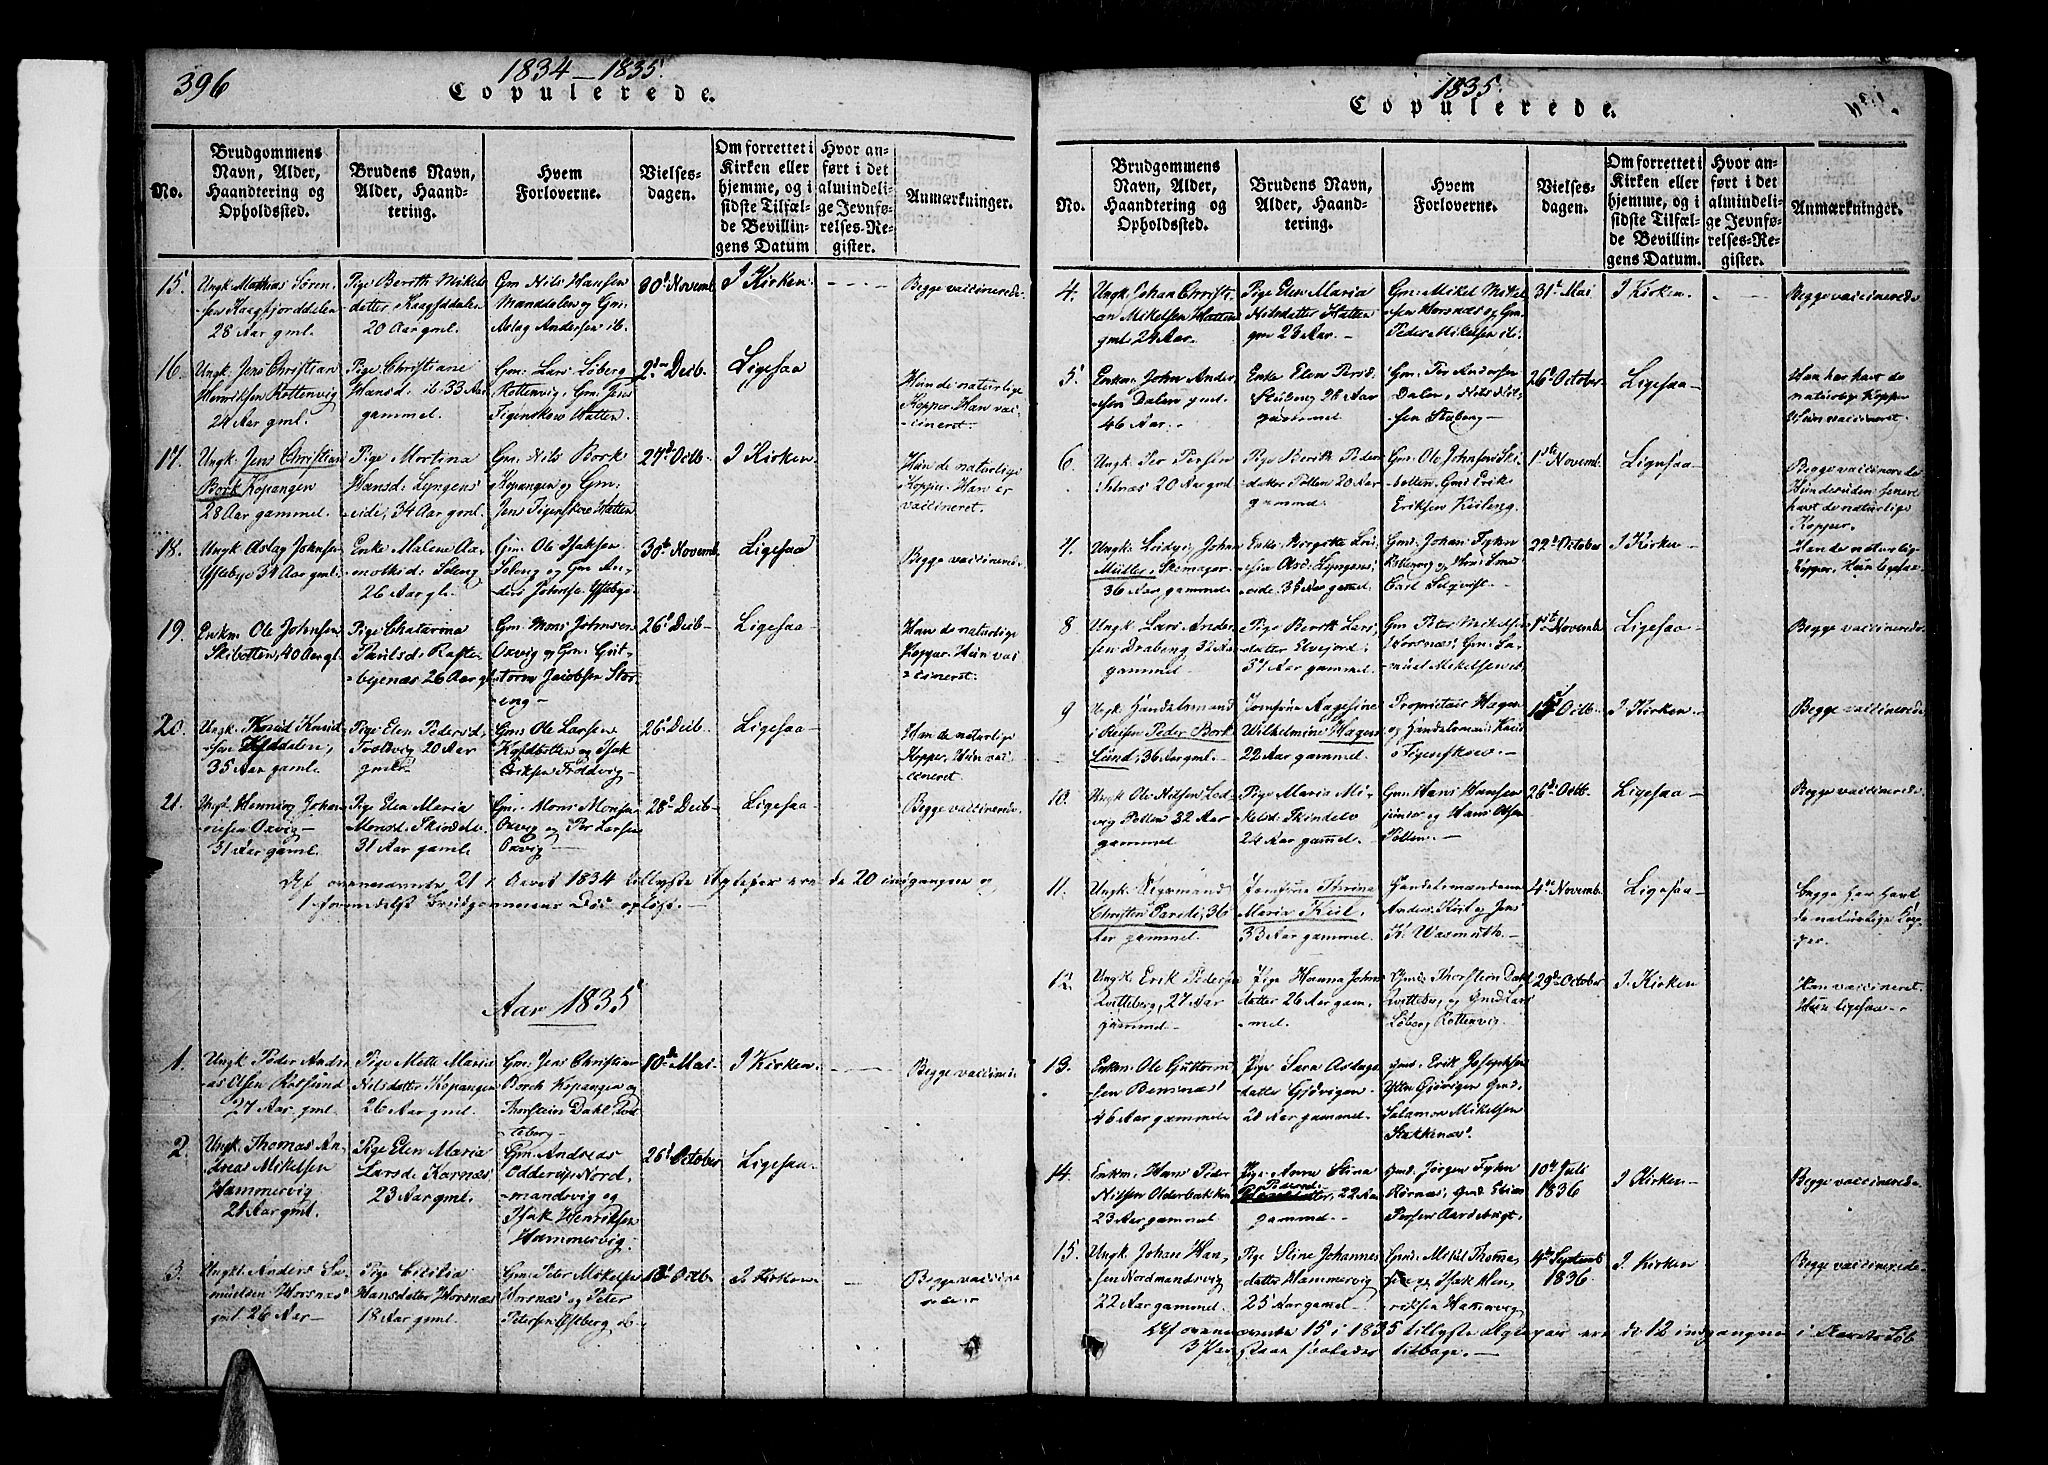 396
1834 – 1835.
Copulerede.
No.
Brudgommens
Navn, Alder,
Haandtering og
Opholdssted.
Brudens Navn,
Alder, Haand-
tering.
Hvem
Forloverne.
Vielses-
dagen.
Om forrettet i
Kirken eller
hjemme, og i
sidste Tilfæl-
de Bevillin-
gens Datum
Hvor an-
ført i det
almindeli-
ge Jevnfø-
relses-Re-
gister.
Anmærkninger.
15.
Ungk. Mathias Sören-
sen Kaagfjorddalen
28 Aar gml.
Pige Berith Mikel
datter, Kaagfddalen
20 Aar gml.
Gm Nils Hansen
Manddalen og Gm:
Aslag Andersen ib.
30d Novemb
I Kirken
Begge vaccinerede
16.
Ungk. Jens Christian
Henriksen Rottenvig
24 Aar gml.
Pige Christiane
Hansd. ib. 33 Aar
gammel.
Gm: Lars Löberg
Rottenvig, Gm: Jens
Figenskow Hatten.
2den Decb
Ligesaa
Hun de naturlige
Kopper. Han vac-
cineret.
17.
Ungk. Jens Christian
Bork Kopangen
28 Aar gammel.
Pige Martina
Hansd: Lyngens-
eide, 34 Aar gml.
Gm. Nils Bork
Kopangen og Gm:
Jens Figenskow Hatten
27d Octb.
I Kirken
Hun de naturlige
Kopper. Han er
vaccineret.
18.
Ungk Aslag Johnsen
34 Aar gml.
Enke Malene
26 Aar gl.
Gm. Ole Isaksen
og Gm An-
ders Johnsen
30te Novemb.
Ligesaa
Begge vaccinerede
19.
Enkm. Ole Johnsen
Skibotten, 40 Aar gl.
Pige Chatarina
Paulsd: Rafte-
26 Aar gl.
Gm. Mons Johnsen
Oxvig og Gm: Gut-
torm Jacobsen Stor-
eng
26d Decb
Ligesaa
Han de naturlige
Kopper. Hun vac-
cineret.
20.
Ungk. Knud Knud-
sen
35 Aar gaml.
Pige Elen Peders d.
Troldvig 20 Aar
gml.
Gm. Ole Larsen
og Isak
Eriksen Troldvig
26d Decb
Ligesaa
Han de naturlige
Kopper. Hun vac-
cineret
21.
Ungk. Henning Johan-
nesen Oxvig
31 Aar gaml.
Pige Elen Maria
Monsd. Skindelv
31 Aar gaml.
Gm. Mons Monsen
Oxvig og Per Larsen
Oxvig
28d Decb
Ligesaa
Begge vaccinerede
Af ovennævnte 21 i Aaret 1834 tillyste Ægtepar ere de 20 indgangne og
1 formedelst Brudgommens Död oplöst.
Aar 1835
1.
Ungk Peder Andre-
as Olsen Kobsund
27 Aar gml.
Pige Mette Maria
Nilsdatter Kopangen
26 Aar gml.
Gm: Jens Christian
Borch Kopangen og
Thorstein Dahl
-teberg.
10de Mai
I Kirken
Begge vaccine
2.
Ungk. Thomas An-
dreas Mikelsen
Hammervig.
21 Aar gml.
Pige Elen Maria
Larsd. Karnæs
23 Aar gml.
Gm. Andreas
Oddersen Nord-
mandsvig og
Isak Henriksen
Hammervig.
26d October
Ligesaa
3.
Ungk. Anders Sa-
muelsen Horsnæs
gml. 26 Aar
Pige Cicilia
Hansdatter Horsnæs
18 Aar gml.
Gm: Peter Mikelsen
Horsnæs og Peter
Petersen ib
18d Octb
I Kirken
Begge vaccine
rede.
1835.
Copulerede.
No.
Brudgommens
Navn, Alder,
Haandtering og
Opholdssted.
Brudens Navn,
Alder, Haand-
tering.
Hvem
Forloverne.
Vielses-
dagen.
Om forrettet i
Kirken eller
hjemme, og i
sidste Tilfæl-
de Bevillin-
gens Datum.
Hvor an-
ført i det
almindeli-
ge Jevnfø-
relses-Re-
gister.
Anmærkninger.
4.
Ungk. Johan Christi-
an Mikelsen Hatten
gml. 24 Aar.
Pige Elen Maria
Nilsdatter Hatten
gm 23 Aar.
Gm: Mikel Mikel
sen Horsnæs og Gm.
Peder Mikelsen ib:
31d Mai
I Kirken.
Begge vaccinerede
5.
Enkm: John Ander
sen Dalen gml.
46 Aar.
Enke Elen Persd.
Steiberg 28 Aar
gammel.
Gm. Per Andersen
Dalen, Nils Nil-
sen
26d October
Ligesaa
Han har havt de
naturlige Kopper
Hun vaccineret.
6.
Ungk: Per Persen
20 Aar gml.
Pige Berith Peders
datter Pollen 20 Aar
gammel.
Gm: Ole Johnsen Ski-
botten. Gm: Erik
Eriksen
1ste Novemb.
Ligesaa
Begge vaccinerede
Hun desuden senere
havt de naturlige
Kopper.
7.
Ungk: Ludvig Johan
Müller, Skomager
36 Aar gammel
Enke
Olsd: Lyngens-
eide. 35 Aar gammel
Gmd: Johan Fyhn
og
Carl Selqvist.
22d October
I Kirken
Han de naturlig
Kopper. Hun ligesaa
8
Ungk. Lars Ander
sen
gammel
Pige Berith Lars
datter Elvejord.
31 Aar gammel.
Gm Peter Mikelsen
Horsnæs. Gm: Sa-
muel Mikelsen ib
1ste Novemb
Ligesaa
Begge vaccinerede
9
Ungk. Handelsmand
i Peder Bork
Lund, 36 Aar gml.
Jomfrue Aagesine
Wilhelmine Hagen
22 Aar gammel.
Proprietair Hagen
og Handelsmand
Figenskow.
Octb.
I Kirken.
Begge vaccinerede
10.
Ungk Ole Nilsen Lod-
vig Pollen 32 Aar
gammel
Pige Maria Mi-
kelsd. Skindelv
24 Aar gammel.
Gm: Hans Hansen
junior og Hans Olsen
Pollen.
26d Octb.
Ligesaa
Begge vaccinerede
11.
Ungk.
Christen Parelie, 36
Aar gammel.
Jomfrue
Maria Kiil.
33 Aar gammel.
Handelsmændene
Anders Kiil og Jens
H: Wasmuth.
4de Novemb.
Ligesaa
begge har havt
de naturlige Kop-
per.
12.
Ungk. Erik Pedersen
Qvitteberg, 27 Aar
gammel
Pige Hanna Johns
datter 26 Aar gam-
mel.
Gmd: Thorstein Dahl
Qvitteberg og Gmd: Lars
Löberg Rottenvig
29de October
I Kirken
Han vaccineret.
Hun ligesaa
13.
Enkm. Ole Guttorm
sen Bensnæs
46 Aar gammel
Pige Sara Aslags-
datter Gjövigen
21 Aar gammel.
Gmd. Erik Josephsen
Yttre Gjövigen Gmd.
Salamon Mikelsen
Stakkenæs.
14.
Enkm. Hans Peder
Nilsen Olderbakken
23 Aar gammel.
Pige Anne Stina
Pedersd.
22 Aar
gammel.
Gmd. Jörgen Fyhn
Kornæs, Gmd. Elias
Persen
10de Juli
1836
I Kirken
Begge vaccinerede
15.
Ungk. Johan Han-
sen Nordmandsvig
22 Aar gammel.
Pige Stine Johannes
datter Hammervig
25 Aar gammel
Gmd. Mikal Thoma-
sen og Isak Hen-
riksen Hamervig
4de Septemb
1836
I Kirken
Begge vaccinerede
Af ovennævnte 15 i 1835 tillyste Ægtepar ere de 12 indgangne i Aarets Löb
3 Par staar saaledes tilbage.